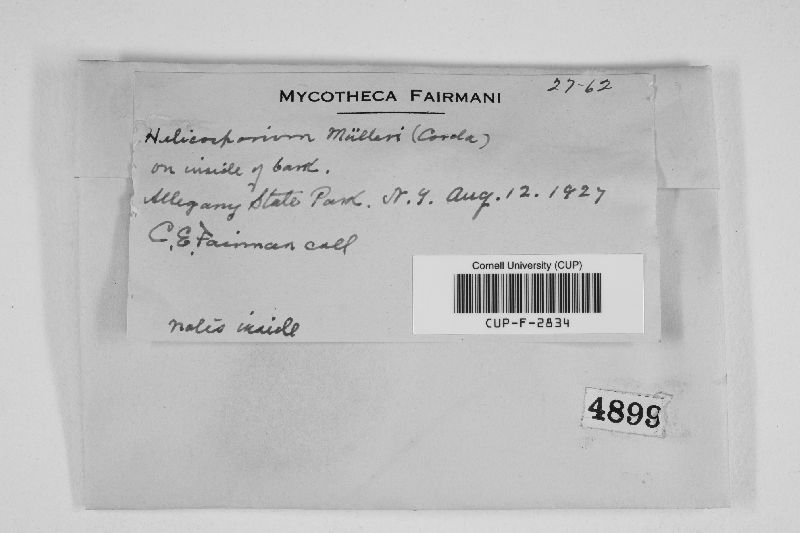 27-62
MYCOTHECA FAIRMANI
Helicosporium Mülleri (Corda)
on inside of bark.
Allegany State Park. N.Y. Aug. 12. 1927
C.E. Fairman coll
notes inside
Cornell University (CUP)
CUP-F-2834
4899